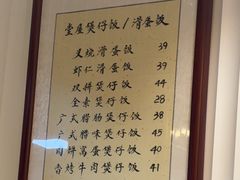 堂屋煲仔饭/滑蛋饭
叉烧滑蛋饭 39
虾仁滑蛋饭 39
双拼煲仔饭 44
金素煲仔饭 28
广式腊肠煲仔饭 38
广式腊味煲仔饭 45
肉饼窝蛋煲仔饭 40
香烤牛肉煲仔饭 41